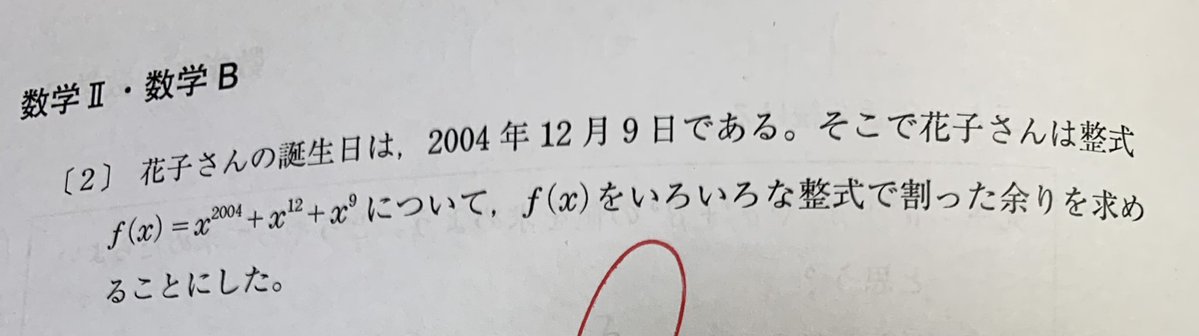 数学Ⅱ・数学B
〔2〕 花子さんの誕生日は，2004年12月9日である。そこで花子さんは整式
f(x)=x²⁰⁰⁴+x¹²+x⁹について，f(x)をいろいろな整式で割った余りを求め
ることにした。